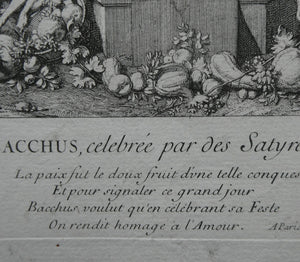 ACCHUS, celebrée par des Satyre
La paix fut le doux fruit d'vne telle conques
Et pour signaler ce grand jour
Bacchus, voulut qu'en célébrant sa Feste
On rendit homage à l'Amour. A Paris